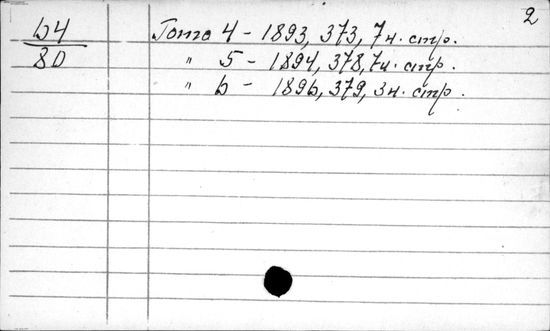 2
64
80
Томо 4 - 1893, 373, 7 н. стр.
" 5 - 1894, 378, 7 н. стр.
" 6 - 1896, 379, 3 н. стр.